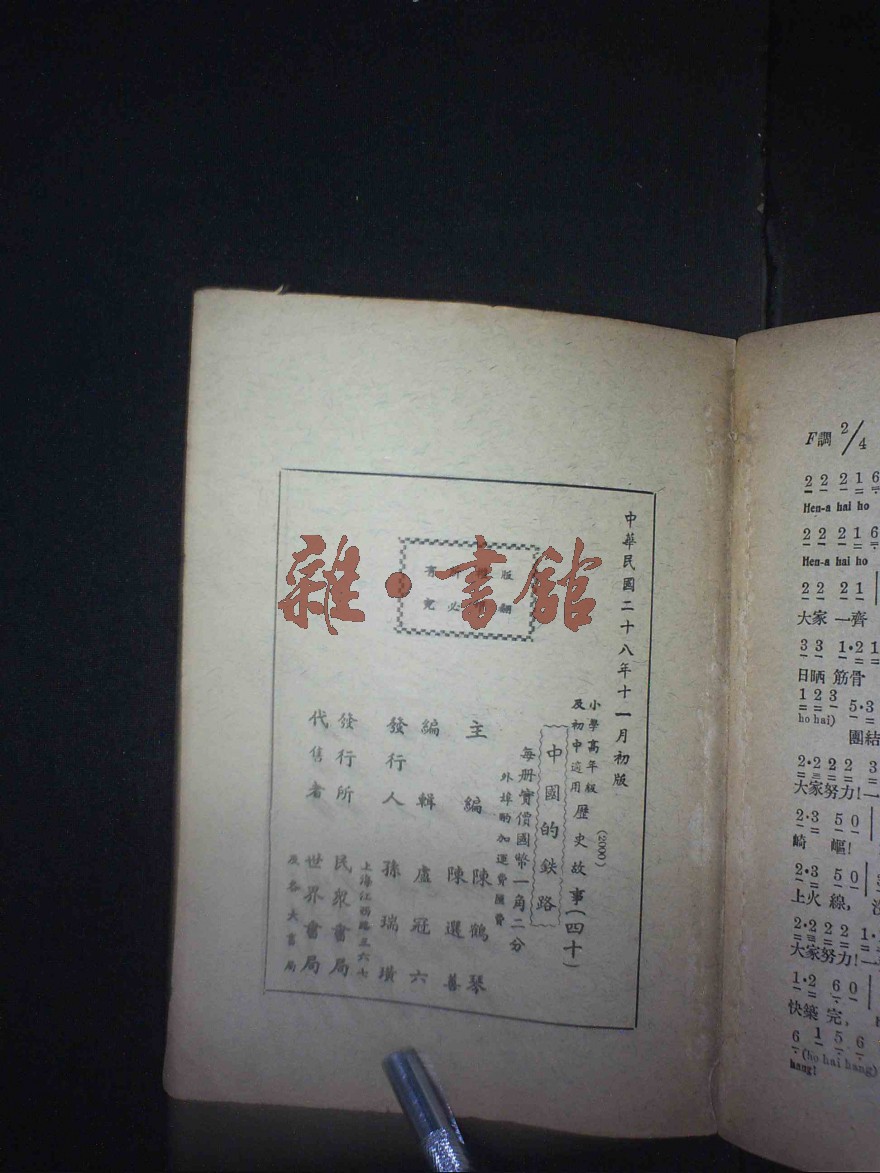 中華民國二十八年十一月初版
(2000)
小學高年版
及初中適用
歷史故事(四十)
中國的鉄路
每册實價國幣一角二分
外埠酌加運費匯費
主編 陳鶴琴
陳選善
編輯 盧冠六
發行人 孫瑞璜
上海江西路三六七
發行所 民眾書局
代售者 世界書局
及各大書局
版權所有
翻印必究
雜·書館
F調 2/4
2 2 2 1 6
Hen-a hai ho
2 2 2 1 6
Hen-a hai ho
2 2 2 1
大家 一齊
3 3 1·2 1
日晒 筋骨
1 2 3 5·3
ho hai)
團結
2·2 2 2 3
大家努力!一
2·3 5 0
崎 嶇!
2·3 5 0
上火 線,
2·2 2 2 1·
大家努力!一
1·2 6 0
快築 完,
6 1 5 6
(ho hai hang)
hang!